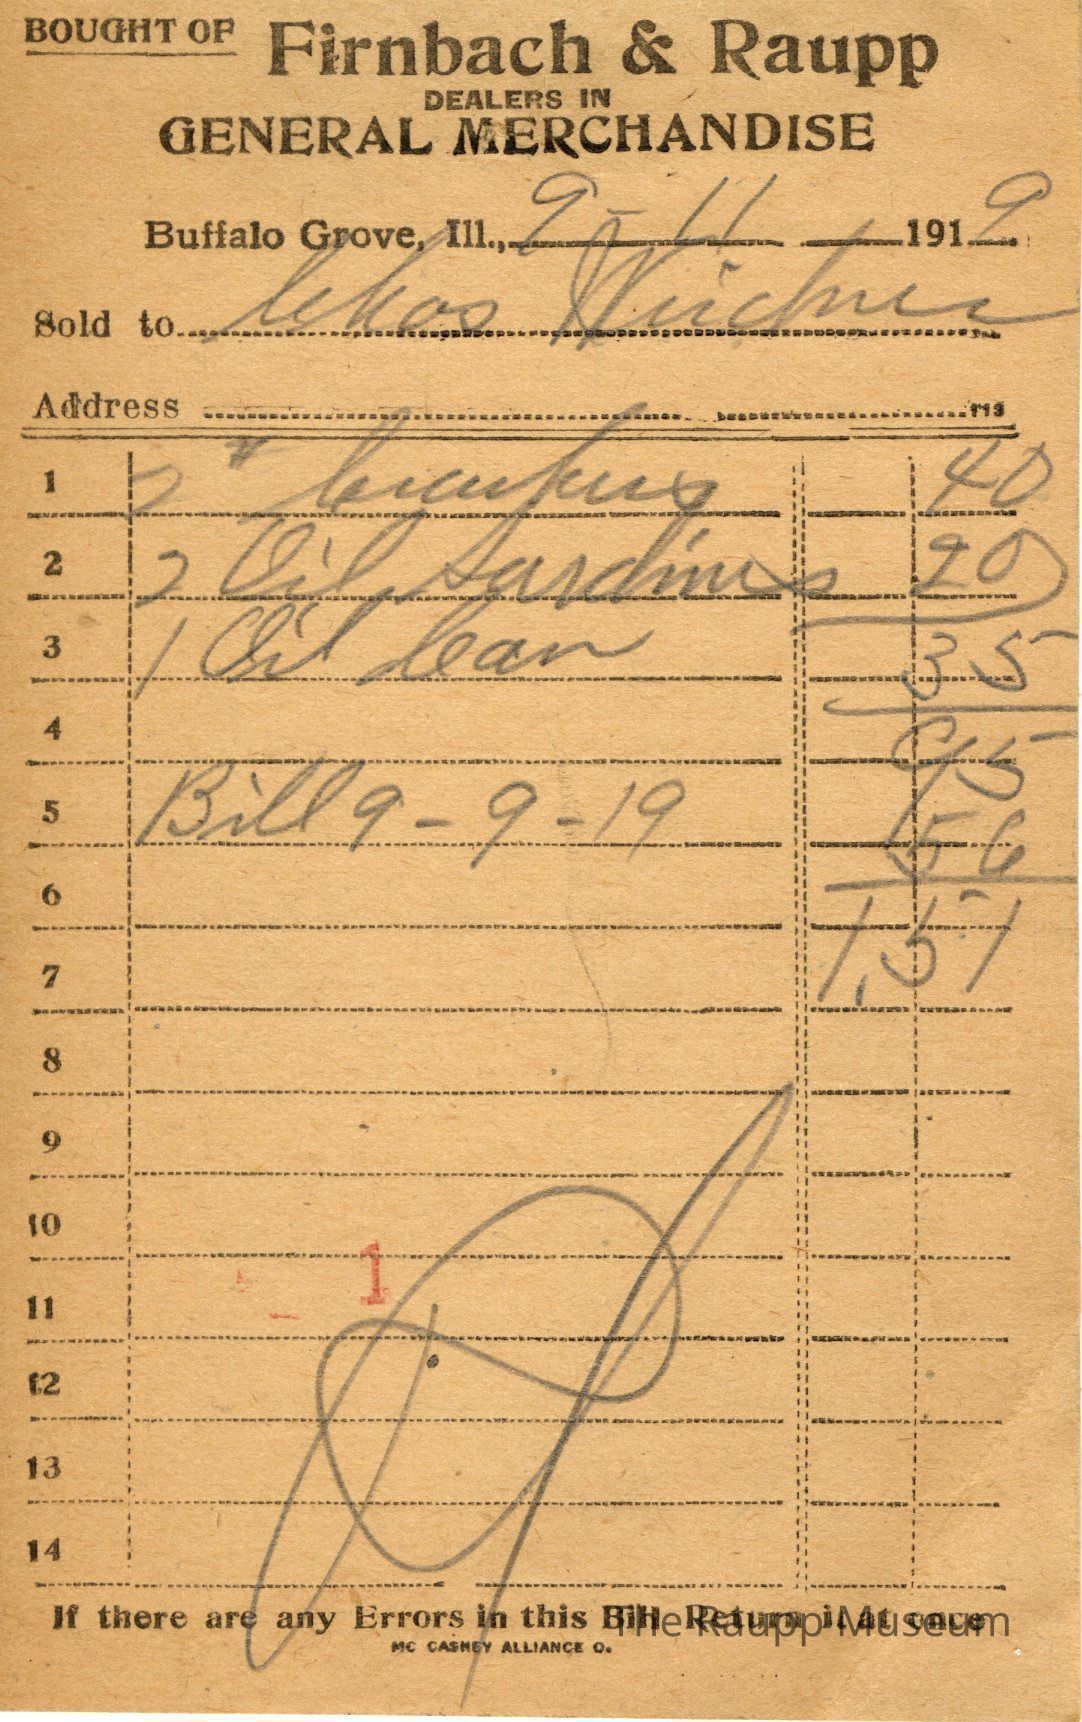 BOUGHT OF Firnbach & Raupp
DEALERS IN
GENERAL MERCHANDISE
Buffalo Grove, Ill., 9-11 1919
Sold to Chas
Address
1 2 # Crackers 40
2 2 Oil Sardines 20
3 1 Oil Can 35
4 95
5 Bill 9-9-19 56
6
7 1,51
8
9
10
1
11
12
13
14
If there are any Errors in this Bill Return it at once
MC CASKEY ALLIANCE O.
The Raupp Museum